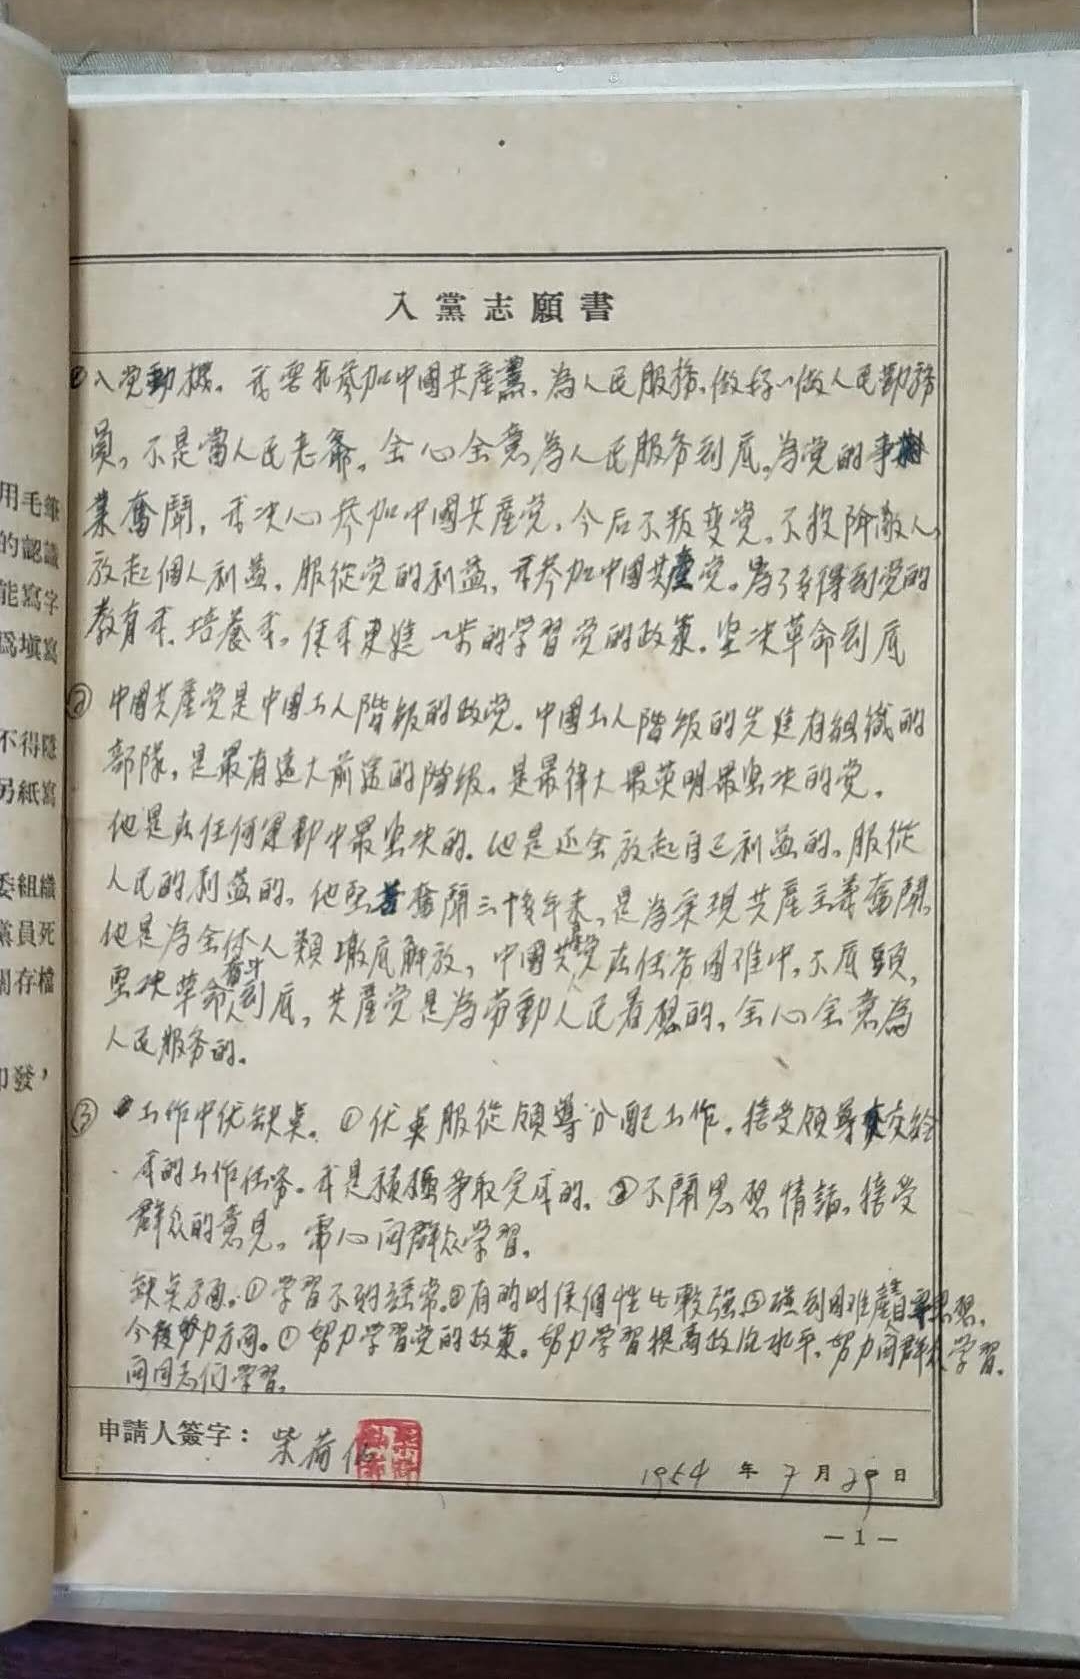 入黨志願書
①入党動機。我要求參加中國共產黨。為人民服務。做好一做人民勤務
員。不是當人民老爺。全心全意為人民服务到底。為党的事
業奮鬪，我决心參加中國共產党。今后不叛变党。不投降敵人。
放起個人利益。服從党的利益。我參加中國共產党。為了多得到党的
教育我。培養我。使我更進一步的学習党的政策。坚决革命到底
② 中國共產党是中國工人階級的政党。中國工人階級的先進有組織的
部隊，是最有遠大前途的階級。是最偉大最英明最坚决的党。
他是在任何運動中最坚决的。他是还会放起自己利益的。服從
人民的利益的。他坚苦奮鬪三十多年来。是為实現共產主義奮鬪。
他是為全体人類澈底解放，中國共產党在任务困难中，不底頭，
坚决革命奋斗到底，共產党是為劳動人民着想的，全心全意為
人民服务的。
③ 工作中优缺点。①优点服從領導分配工作。接受領導交给
我的工作任务。我是積極争取完成的。②不鬧思想情緒。接受
群众的意見。虚心向群众学習。
缺点方面。①学習不够经常。②有的时候個性比較强。③碰到困难產 思想。
今後努力方向。①努力学習党的政策。努力学習提高政治水平。努力向群众学習。
向同志们学習。
申請人簽字： 柴荷仙
1954 年 7 月 29 日
— 1 —
用毛筆
的認識
能寫字
爲填寫
不得隱
另紙寫
委組織
黨員死
關存檔
印發，